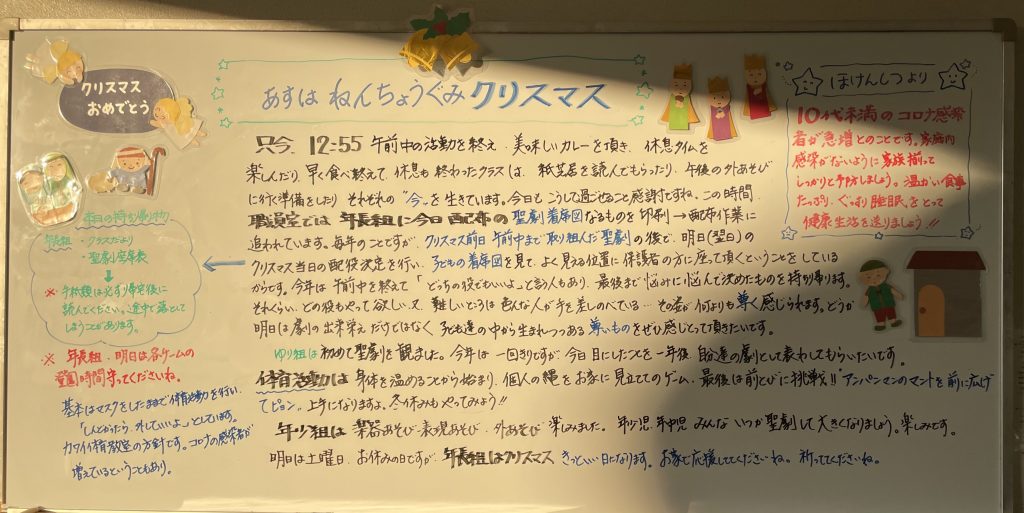 クリスマス
おめでとう
あすは ねんちょうぐみ クリスマス
ほけんしつより
10代未満のコロナ感染
者が急増とのことです。家庭内
感染がないように 家族揃って
しっかりと予防しましょう。温かい食事
たっぷり、ぐっすり睡眠をとって
健康生活を送りましょう!!
只今、12:55 午前中の活動を終え、美味しいカレーを頂き、休息タイムを
楽しんだり、早く食べ終えて、休息も終わったクラスは、紙芝居を読んでもらったり、午後の外あそび
に行く準備をしたり それぞれの"今"を生きています。今日も こうして過ごせること感謝ですね。この時間、
職員室では 年長組に今日配布の 聖劇着席図なるものを印刷→配布作業に
追われています。毎年のことですが、クリスマス前日 午前中まで取り組んだ聖劇の後で、明日(翌日)の
クリスマス当日の配役決定を行い、子どもの着席図を見て、よく見える位置に保護者の方に座って頂くということをしている
からです。今年は 午前中を終えて「どっちの役でもいいよ」と言う人もあり、最後まで悩みに悩んで決めたものを持ち帰ります。
それくらい、どの役もやって欲しい、又、難しいところは色んな人が手を差しのべている… その姿が何よりも尊く感じられます。どうか
明日は劇の出来栄えだけではなく 子ども達の中から生まれつつある 尊いものをぜひ感じとって頂きたいです。
ゆり組は 初めて聖劇を観ました。今年は 一回きりですが 今日目にしたことを一年後、自分達の劇として表わしてもらいたいです。
体育活動は 身体を温めることから始まり、個人の縄をお家に見立ててのゲーム、最後は前とびに挑戦!! "アンパンマンのマントを前に広げ
てピョン" 上手になりますよ。冬休みもやってみよう!!
年少組は 楽器あそび・表現あそび・外あそび 楽しみました。年少児・年中児 みんな いつか聖劇して大きくなりましょう。楽しみです。
明日は土曜日、お休みの日ですが、年長組はクリスマス きっといい日になります。お家で応援しててくださいね。祈っててくださいね。
本日の持ち帰り物
年長組 ・クラスだより
・聖劇座席表
※ 手紙類は必ず帰宅後に
読んでください。途中で落として
しまうことがあります。
※ 年長組 明日は、各ゲームの
登園時間 守ってくださいね。
基本はマスクをしたままで体育活動を行い、
「しんどかったら 外していいよ」としています。
カワイ体育教室の方針です。コロナの感染者が
増えているということもあり。